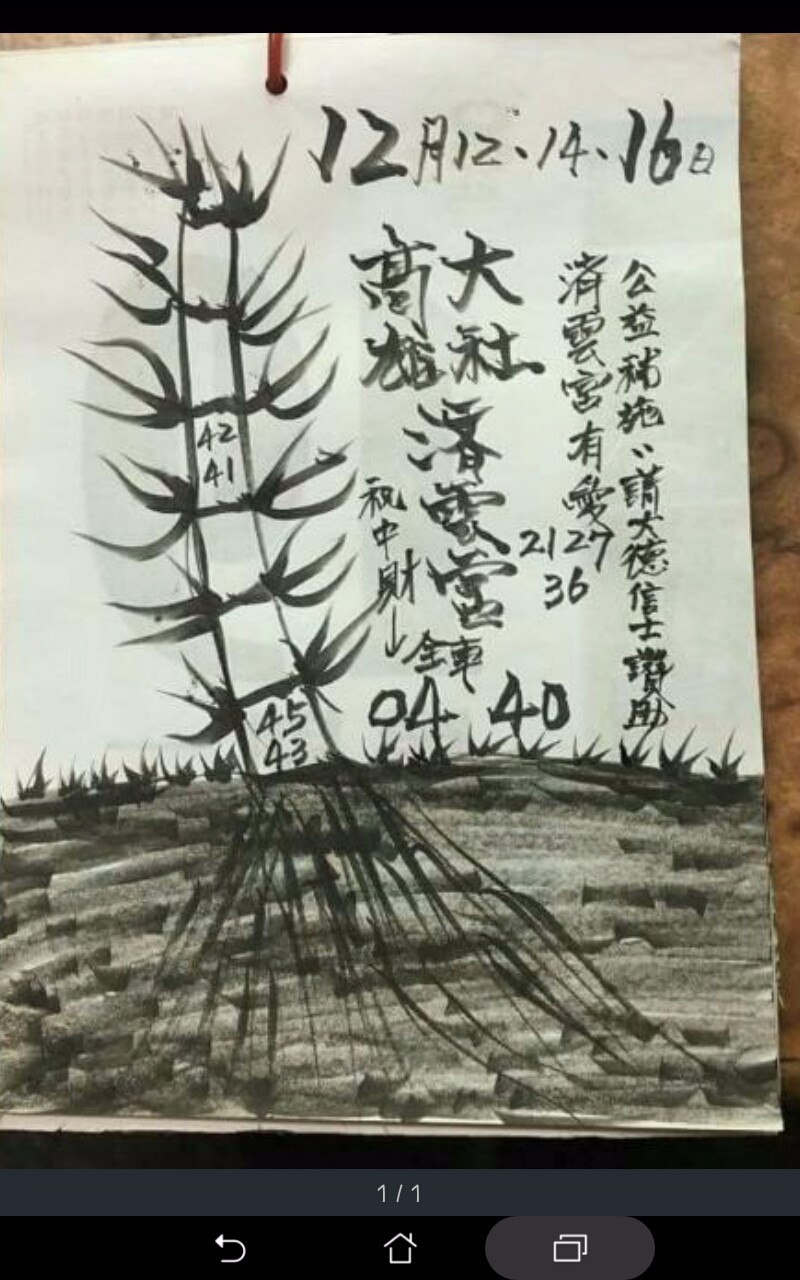 12月12、14、16日
公益補施〃請大德信士讚助
清雲宮有愛
2127
36
大社
高雄
清雲宮
祝中財↓
全車
04 40
42
41
45
43
1/1